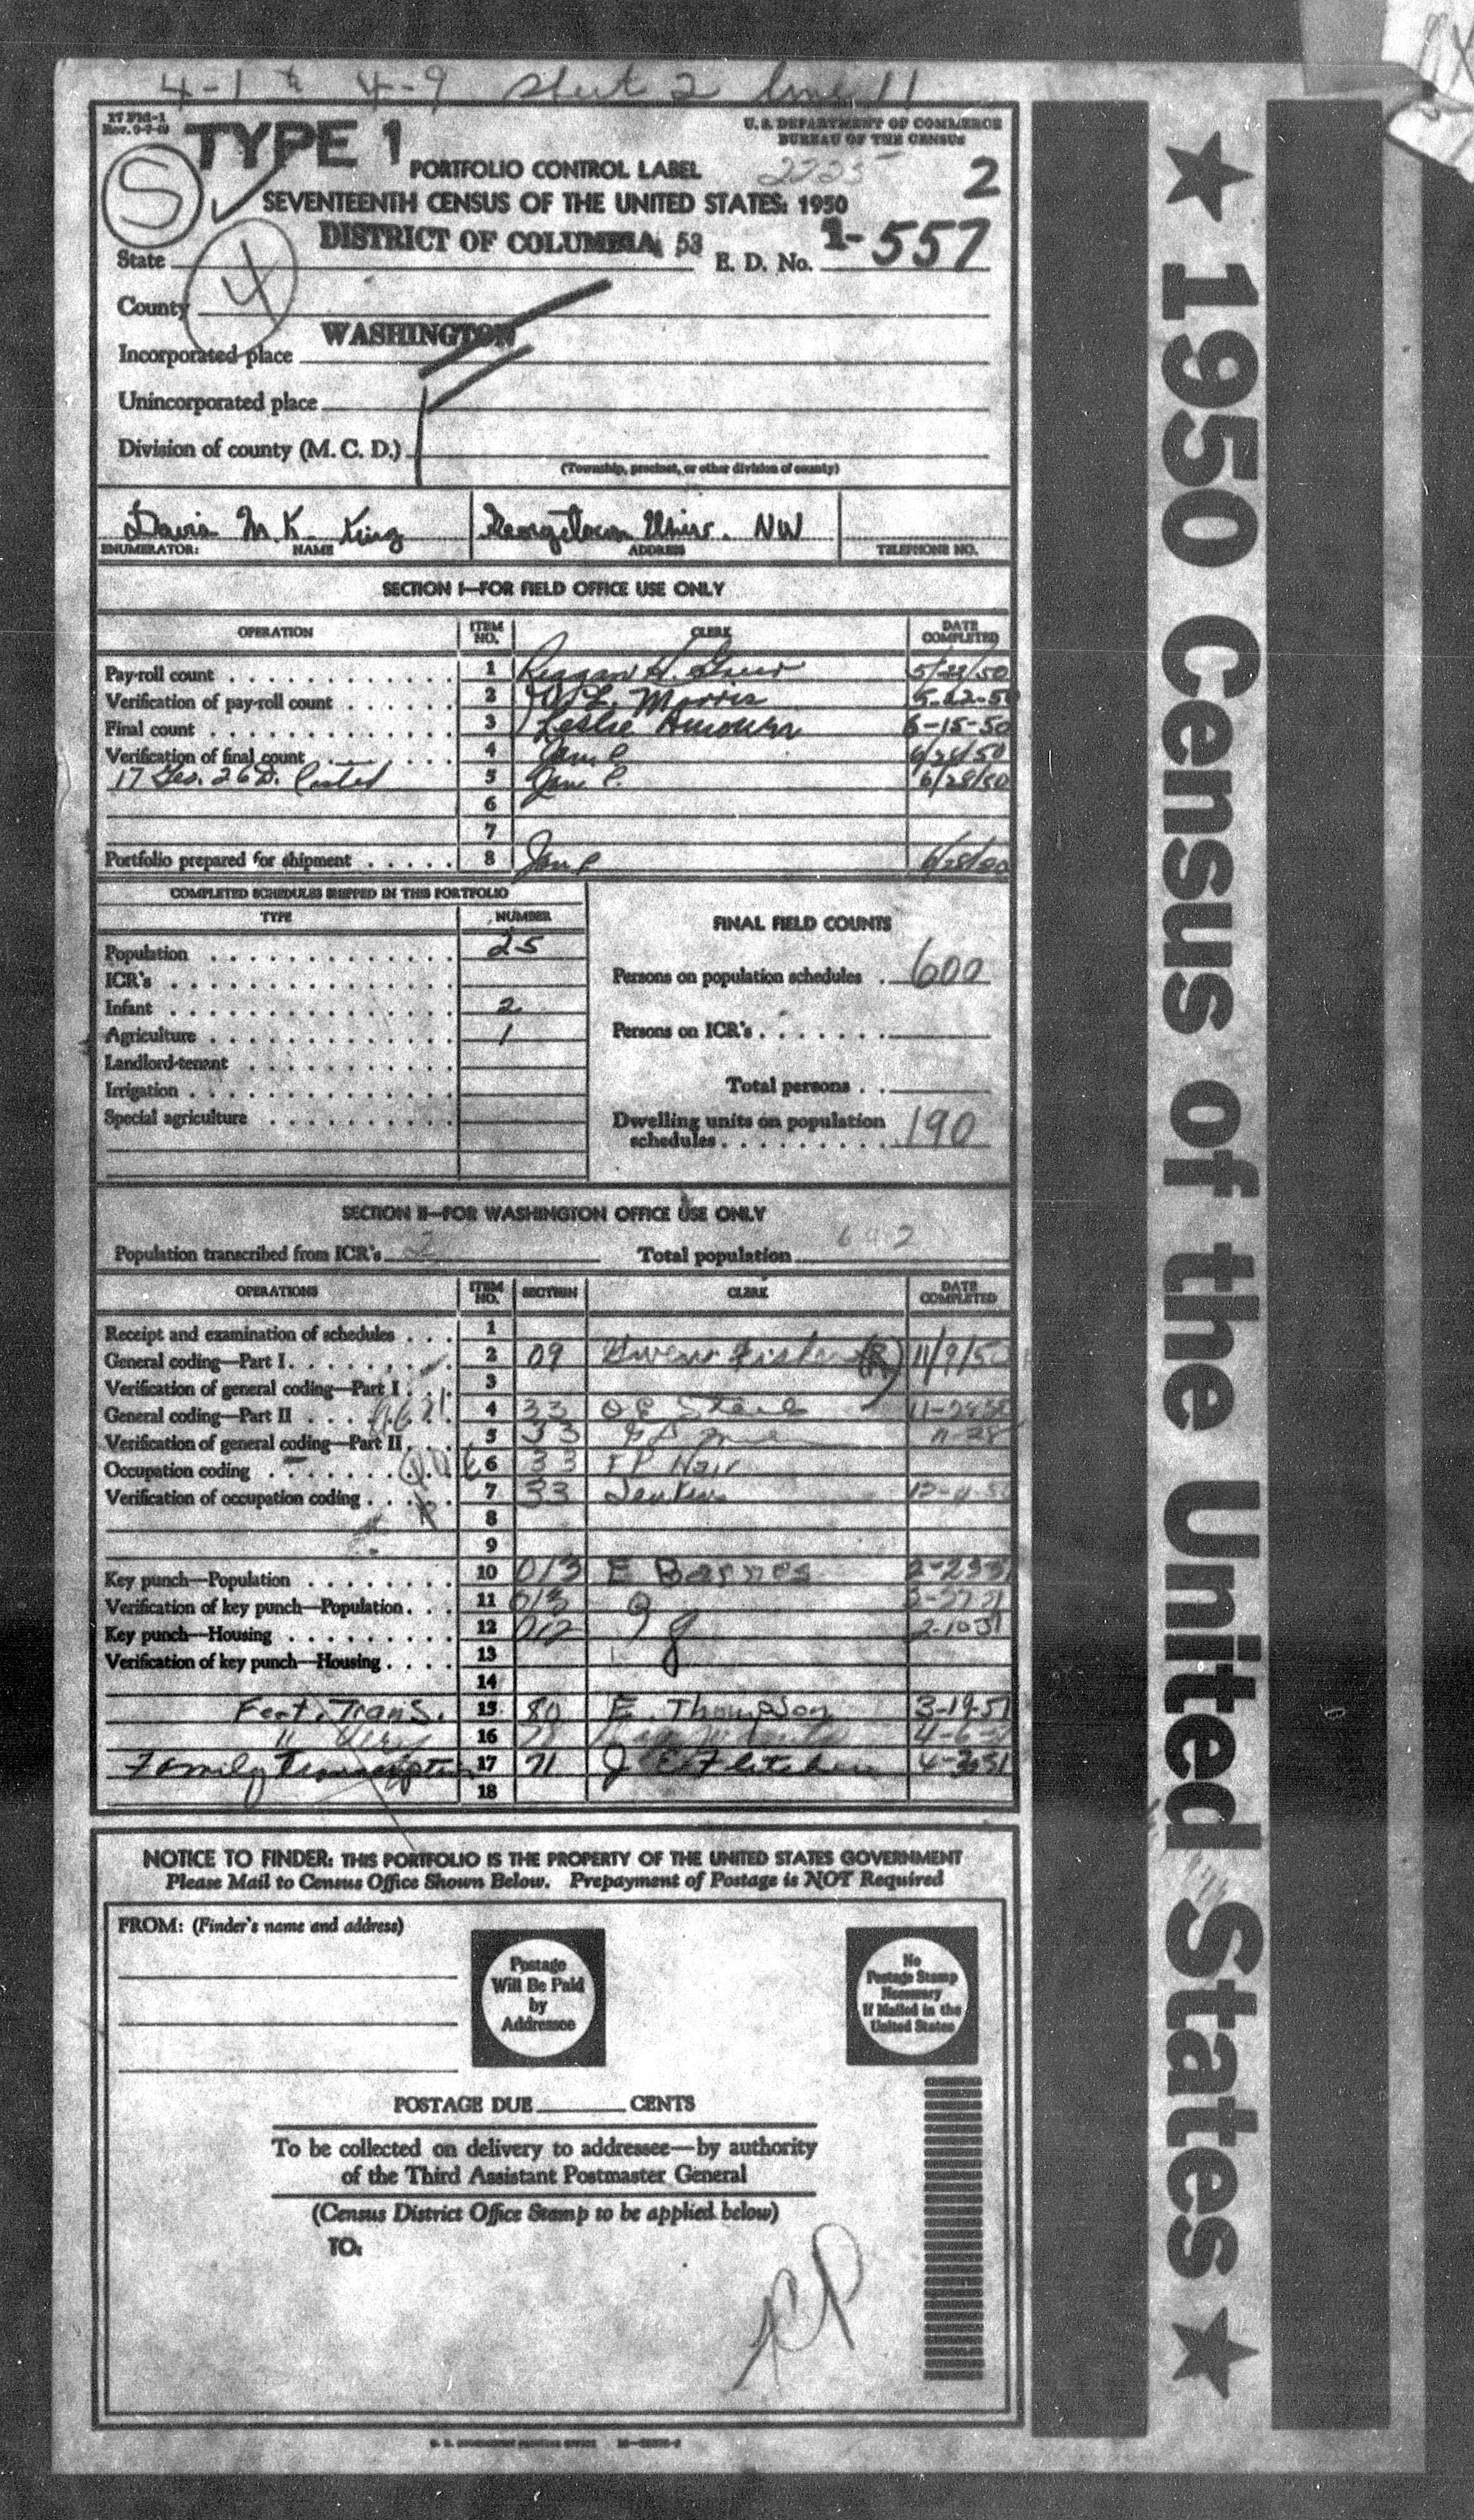 4-1 & 4-9 sheet 2 line 11
17 FM-1
Rev. 9-7-49
TYPE 1
U. S. DEPARTMENT OF COMMERCE
BUREAU OF THE CENSUS
S
PORTFOLIO CONTROL LABEL 2225 2
SEVENTEENTH CENSUS OF THE UNITED STATES: 1950
State DISTRICT OF COLUMBIA 53 E. D. No. 1-557
County 4
Incorporated place WASHINGTON
Unincorporated place
Division of county (M. C. D.)
(Township, precinct, or other division of county)
Davis M. K. King Georgetown Univ. NW
ENUMERATOR: NAME ADDRESS TELEPHONE NO.
SECTION I—FOR FIELD OFFICE USE ONLY
OPERATION ITEM NO. CLERK DATE COMPLETED
Pay-roll count 1 Reagan H. 5/22/50
Verification of pay-roll count 2 Morris 5-22-50
Final count 3 Leslie 6-15-50
Verification of final count 4 Jan P.
17 Geo. 26 D. 5 Jan P. 6/28/50
6
7
Portfolio prepared for shipment 8 Jan P 6/28/50
COMPLETED SCHEDULES SHIPPED IN THIS PORTFOLIO
TYPE NUMBER
Population 25
ICR's
Infant 2
Agriculture 1
Landlord-tenant
Irrigation
Special agriculture
FINAL FIELD COUNTS
Persons on population schedules 600
Persons on ICR's
Total persons
Dwelling units on population
schedules 190
SECTION II—FOR WASHINGTON OFFICE USE ONLY
Population transcribed from ICR's 2 Total population 602
OPERATIONS ITEM NO. SECTION CLERK DATE COMPLETED
Receipt and examination of schedules 1
General coding—Part I 2 09 (R) 11/9/50
Verification of general coding—Part I 3
General coding—Part II 4 33 O E Steele
Verification of general coding—Part II 5 33 11-28
Occupation coding 6 33 F P Hair
Verification of occupation coding 7 33 Jenkins
8
9
Key punch—Population 10 013 E Barnes 2-23-51
Verification of key punch—Population 11 013
Key punch—Housing 12 012 2-10-51
Verification of key punch—Housing 13
14
Fert. Trans. 15 80 E. Thompson 3-19-51
" Very 16
Family Transcription 17 71 J E Fletcher
18
NOTICE TO FINDER: THIS PORTFOLIO IS THE PROPERTY OF THE UNITED STATES GOVERNMENT
Please Mail to Census Office Shown Below. Prepayment of Postage is NOT Required
FROM: (Finder's name and address)
Postage
Will Be Paid
by
Addressee
No
Postage Stamp
Necessary
If Mailed in the
United States
POSTAGE DUE CENTS
To be collected on delivery to addressee—by authority
of the Third Assistant Postmaster General
(Census District Office Stamp to be applied below)
TO:
U. S. GOVERNMENT PRINTING OFFICE
★ 1950 Census of the United States ★